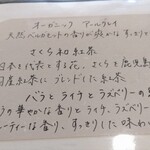 オーガニック アールグレイ
天然ベルガモットの香りが爽かな すっきりと
さくら和紅茶
日本を代表とする花、さくらと鹿児島
国産紅茶にブレンドした紅茶
バラとライチとラズベリーの
の華やかな香りとライチ、ラズベリー
ーティーな香り、すっきりした味わい